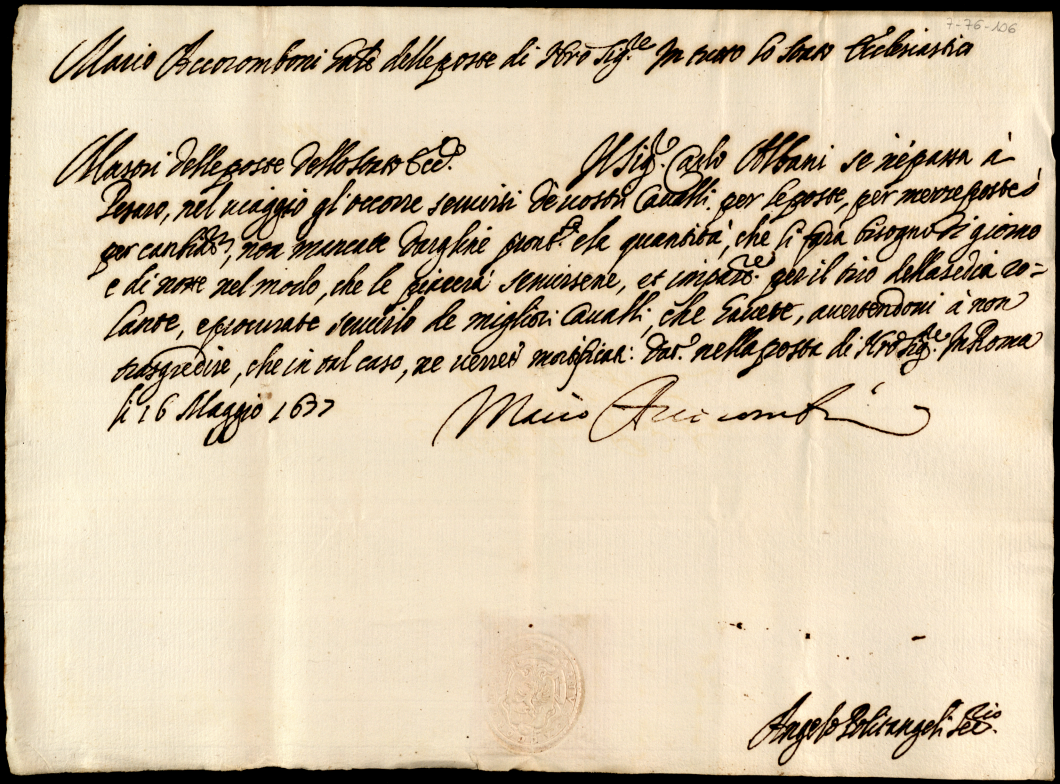 7-76-106
Mario Accoromboni Gñle delle poste di Nro Sig.re In tutto lo stato Ecclesiastico
Mastri delle poste dello stato Ecc.co Il Sig.r Carlo Albani se ne passa à
Pesaro, nel viaggio gl'occorre servirsi de vostri Cavalli per le poste, per mezze poste ò
per cambiat.ra, non mancate dargline pront.e ela quantità, che li farà bisogno di giorno
e di notte nel modo, che le piacerà servirsene, et impart.re per il tiro della sedia vo=
lante, e procurate servirlo de migliori Cavalli, che havete, avertendovi à non
trasgredire, che in tal caso, ne verrei mortificati: Dat.a nella posta di Nro Sig.re In Roma
li 16 Maggio 1677
Mario Accoromboni
Angelo Politangeli Sec.rio